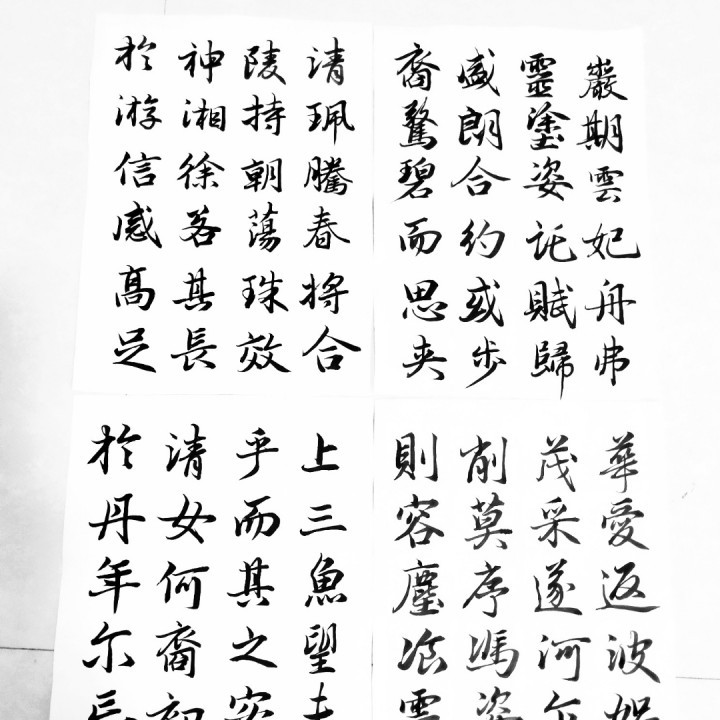 巖期雲妃舟弗
靈塗姿託賦歸
感朗合約或步
裔驚碧而思夾
清珮騰春將合
陵持朝蕩珠效
神湘徐若其長
於游信感高足
華愛返波
茂采遂河尔
削莫序馮姿
則容塵飡雲
上三魚望未
乎而其之容
清女何裔初
於丹年尔長